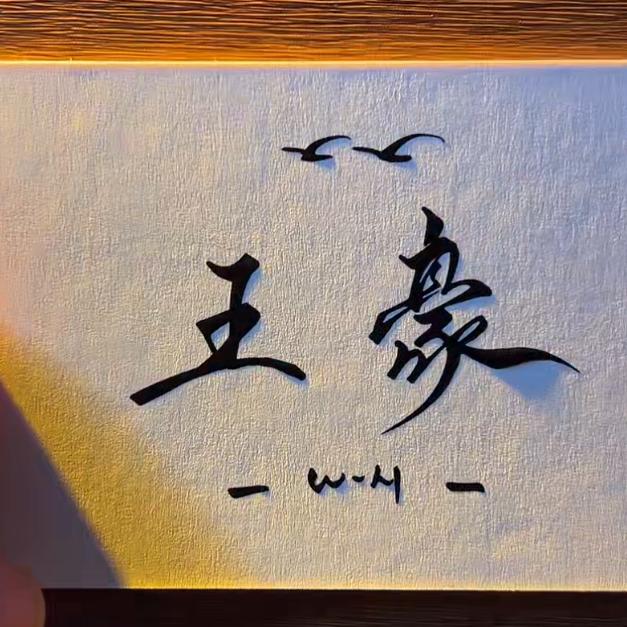 王豪
- W·H -